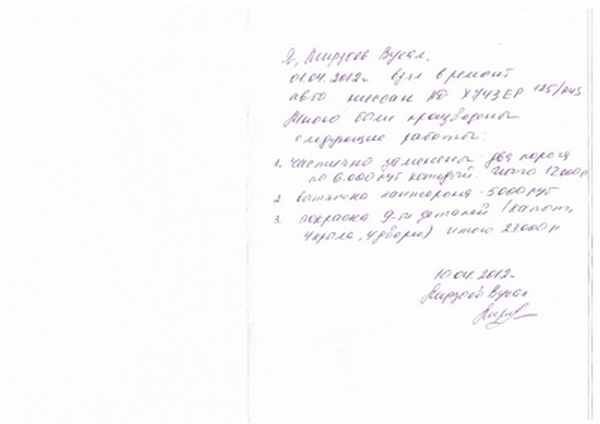 Я, Мирзоев Вусал,
01.04.2012г. взял в ремонт
авто ниссан Х743ЕР 125/RUS
Мною были произведены
следующие работы:
1. Частично заменены два порога
по 6.000 руб каждый. Итого 12000р
2. вытяжка - 5000 руб
3. покраска 9-ти деталей (капот,
4 крыла, 4 двери) Итого 27000р
10.04.2012г.
Мирзоев Вусал